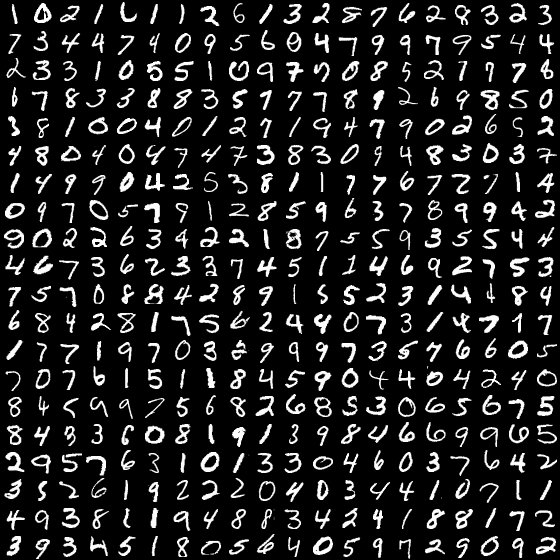 1 0 2 1 6 1 1 2 6 1 3 2 8 7 6 2 8 3 2 3
7 3 4 4 7 4 0 9 5 6 0 4 7 9 9 7 9 5 4 4
2 3 3 1 0 5 5 1 0 9 7 7 0 8 5 2 7 7 7 6
6 7 8 3 3 8 8 3 5 7 7 7 8 9 2 6 9 8 5 0
3 8 1 0 0 4 0 1 2 7 1 9 4 7 9 0 2 6 5 2
4 8 0 4 0 4 7 4 7 3 8 3 0 9 4 8 3 0 3 7
1 4 9 9 0 4 2 5 3 8 1 1 7 7 6 7 2 7 1 4
0 9 7 0 5 7 9 1 2 8 5 9 6 3 7 8 9 9 4 2
9 0 2 2 6 3 4 2 2 1 8 7 5 5 9 3 5 5 4 4
4 6 7 3 6 2 3 3 7 4 5 1 1 4 6 9 2 7 5 3
7 5 7 0 8 8 4 2 8 9 1 5 5 2 3 1 4 4 8 4
6 8 4 2 8 1 7 5 6 2 4 4 0 7 3 1 4 7 1 7
1 7 7 1 9 7 0 3 2 9 9 9 7 3 5 7 6 6 0 5
7 0 7 6 1 5 1 1 8 4 5 9 0 4 4 0 4 2 4 0
8 4 5 9 9 7 5 6 8 2 6 8 5 3 0 6 5 6 7 5
8 4 3 3 6 0 8 1 9 1 3 9 8 4 6 6 9 9 6 5
2 9 5 7 6 3 1 0 1 3 3 0 4 6 0 3 7 6 4 2
3 5 2 6 1 9 2 2 2 0 4 0 3 4 4 1 0 7 1 1
4 9 3 8 1 1 9 4 8 8 3 4 2 4 1 8 8 1 7 3
3 9 3 4 5 1 8 0 5 6 4 0 5 9 7 2 9 0 9 2